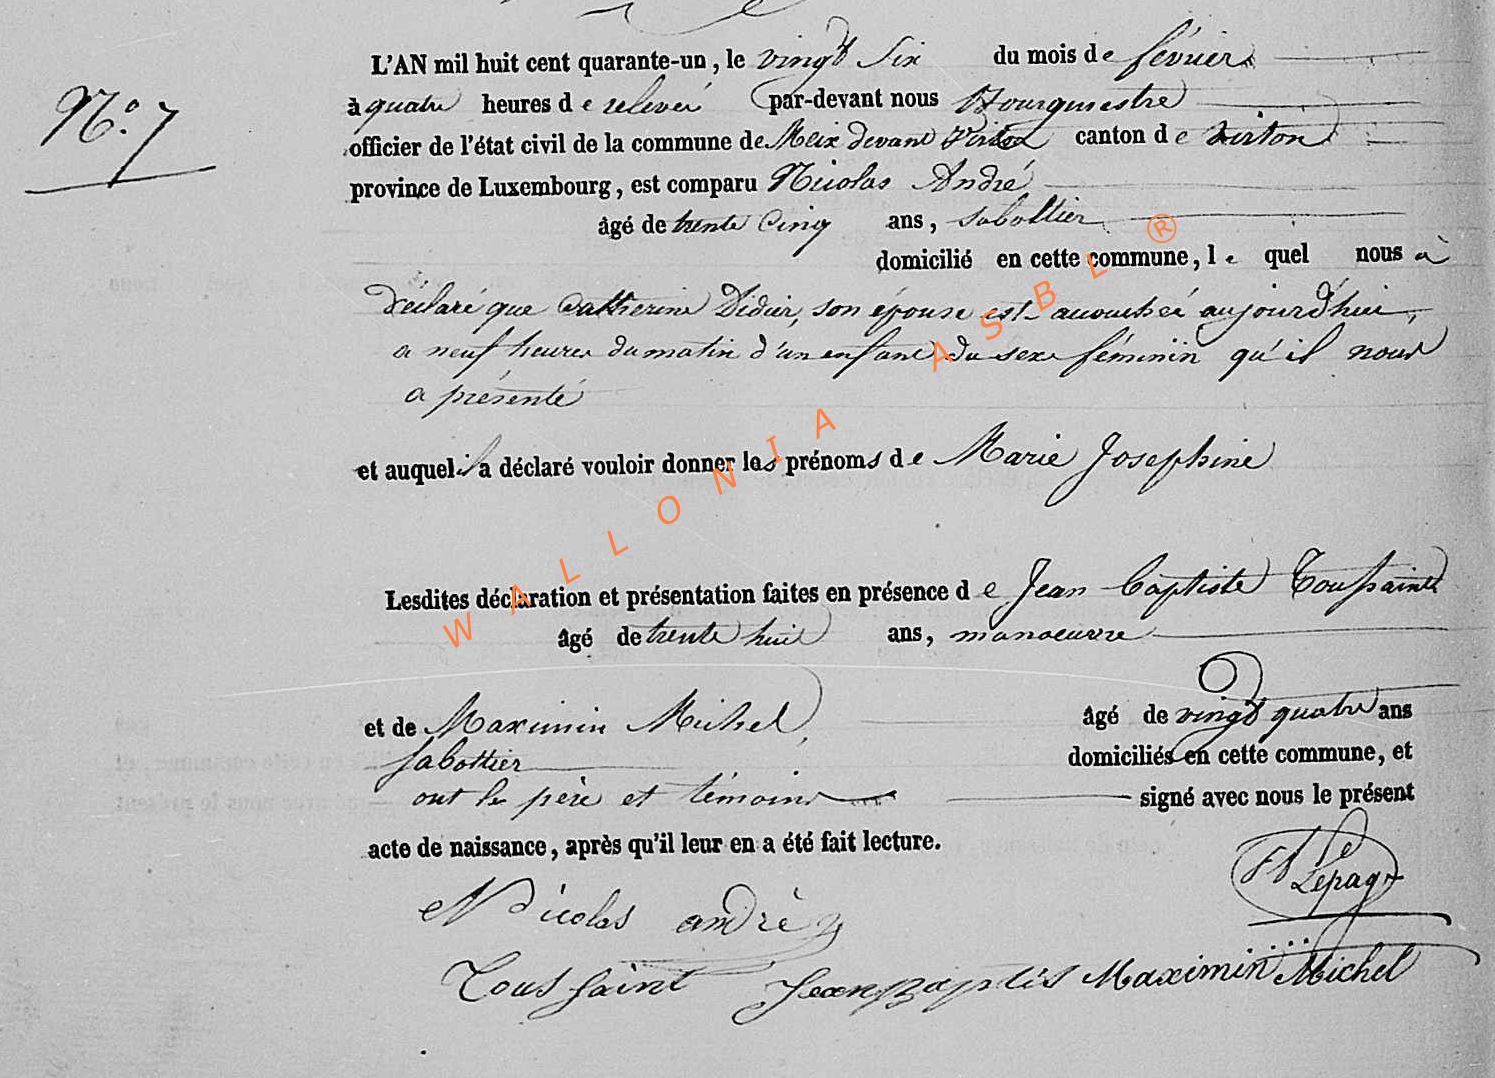 N.º 7
L'AN mil huit cent quarante-un, le vingt Six du mois de février
à quatre heures de relevée par-devant nous Bourgmestre
officier de l'état civil de la commune de Meix devant Virton canton de virton
province de Luxembourg, est comparu Nicolas André
âgé de trente Cinq ans, sabottier
domicilié en cette commune, le quel nous à
déclaré que Catherine Didier, son épouse est accouchée aujourd'hui,
a neuf heures du matin d'un enfant du sexe féminin qu'il nous
a présenté
et auquel il a déclaré vouloir donner les prénoms de Marie Josephine
Lesdites déclaration et présentation faites en présence de Jean Baptiste Toussaint
âgé de trente huit ans, manoeuvre
et de Maximin Michel, âgé de vingt quatre ans
sabottier domiciliés en cette commune, et
ont le père et témoins signé avec nous le présent
acte de naissance, après qu'il leur en a été fait lecture.
Lepage
Nicolas andré
Toussaint Jean Baptis Maximin Michel
WALLONIA ASBL ®